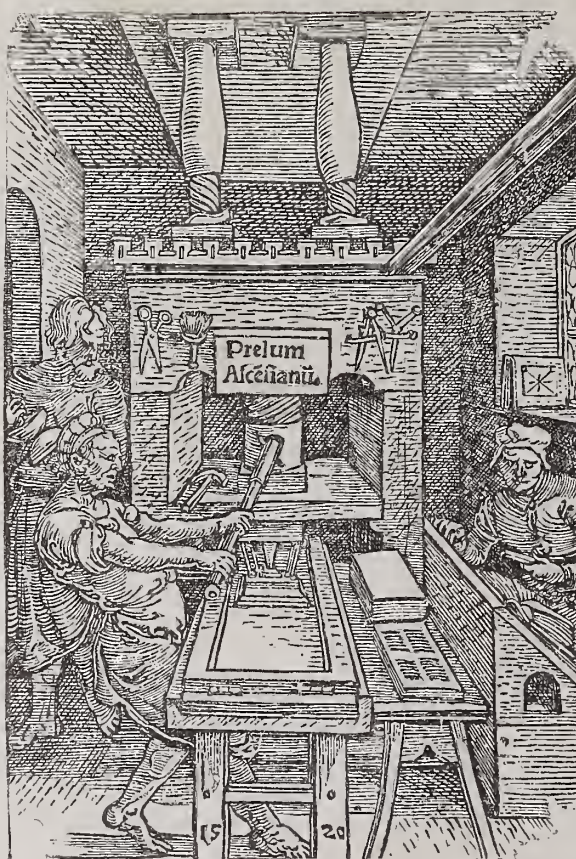 Prelum
Ascēsianū.
15 20